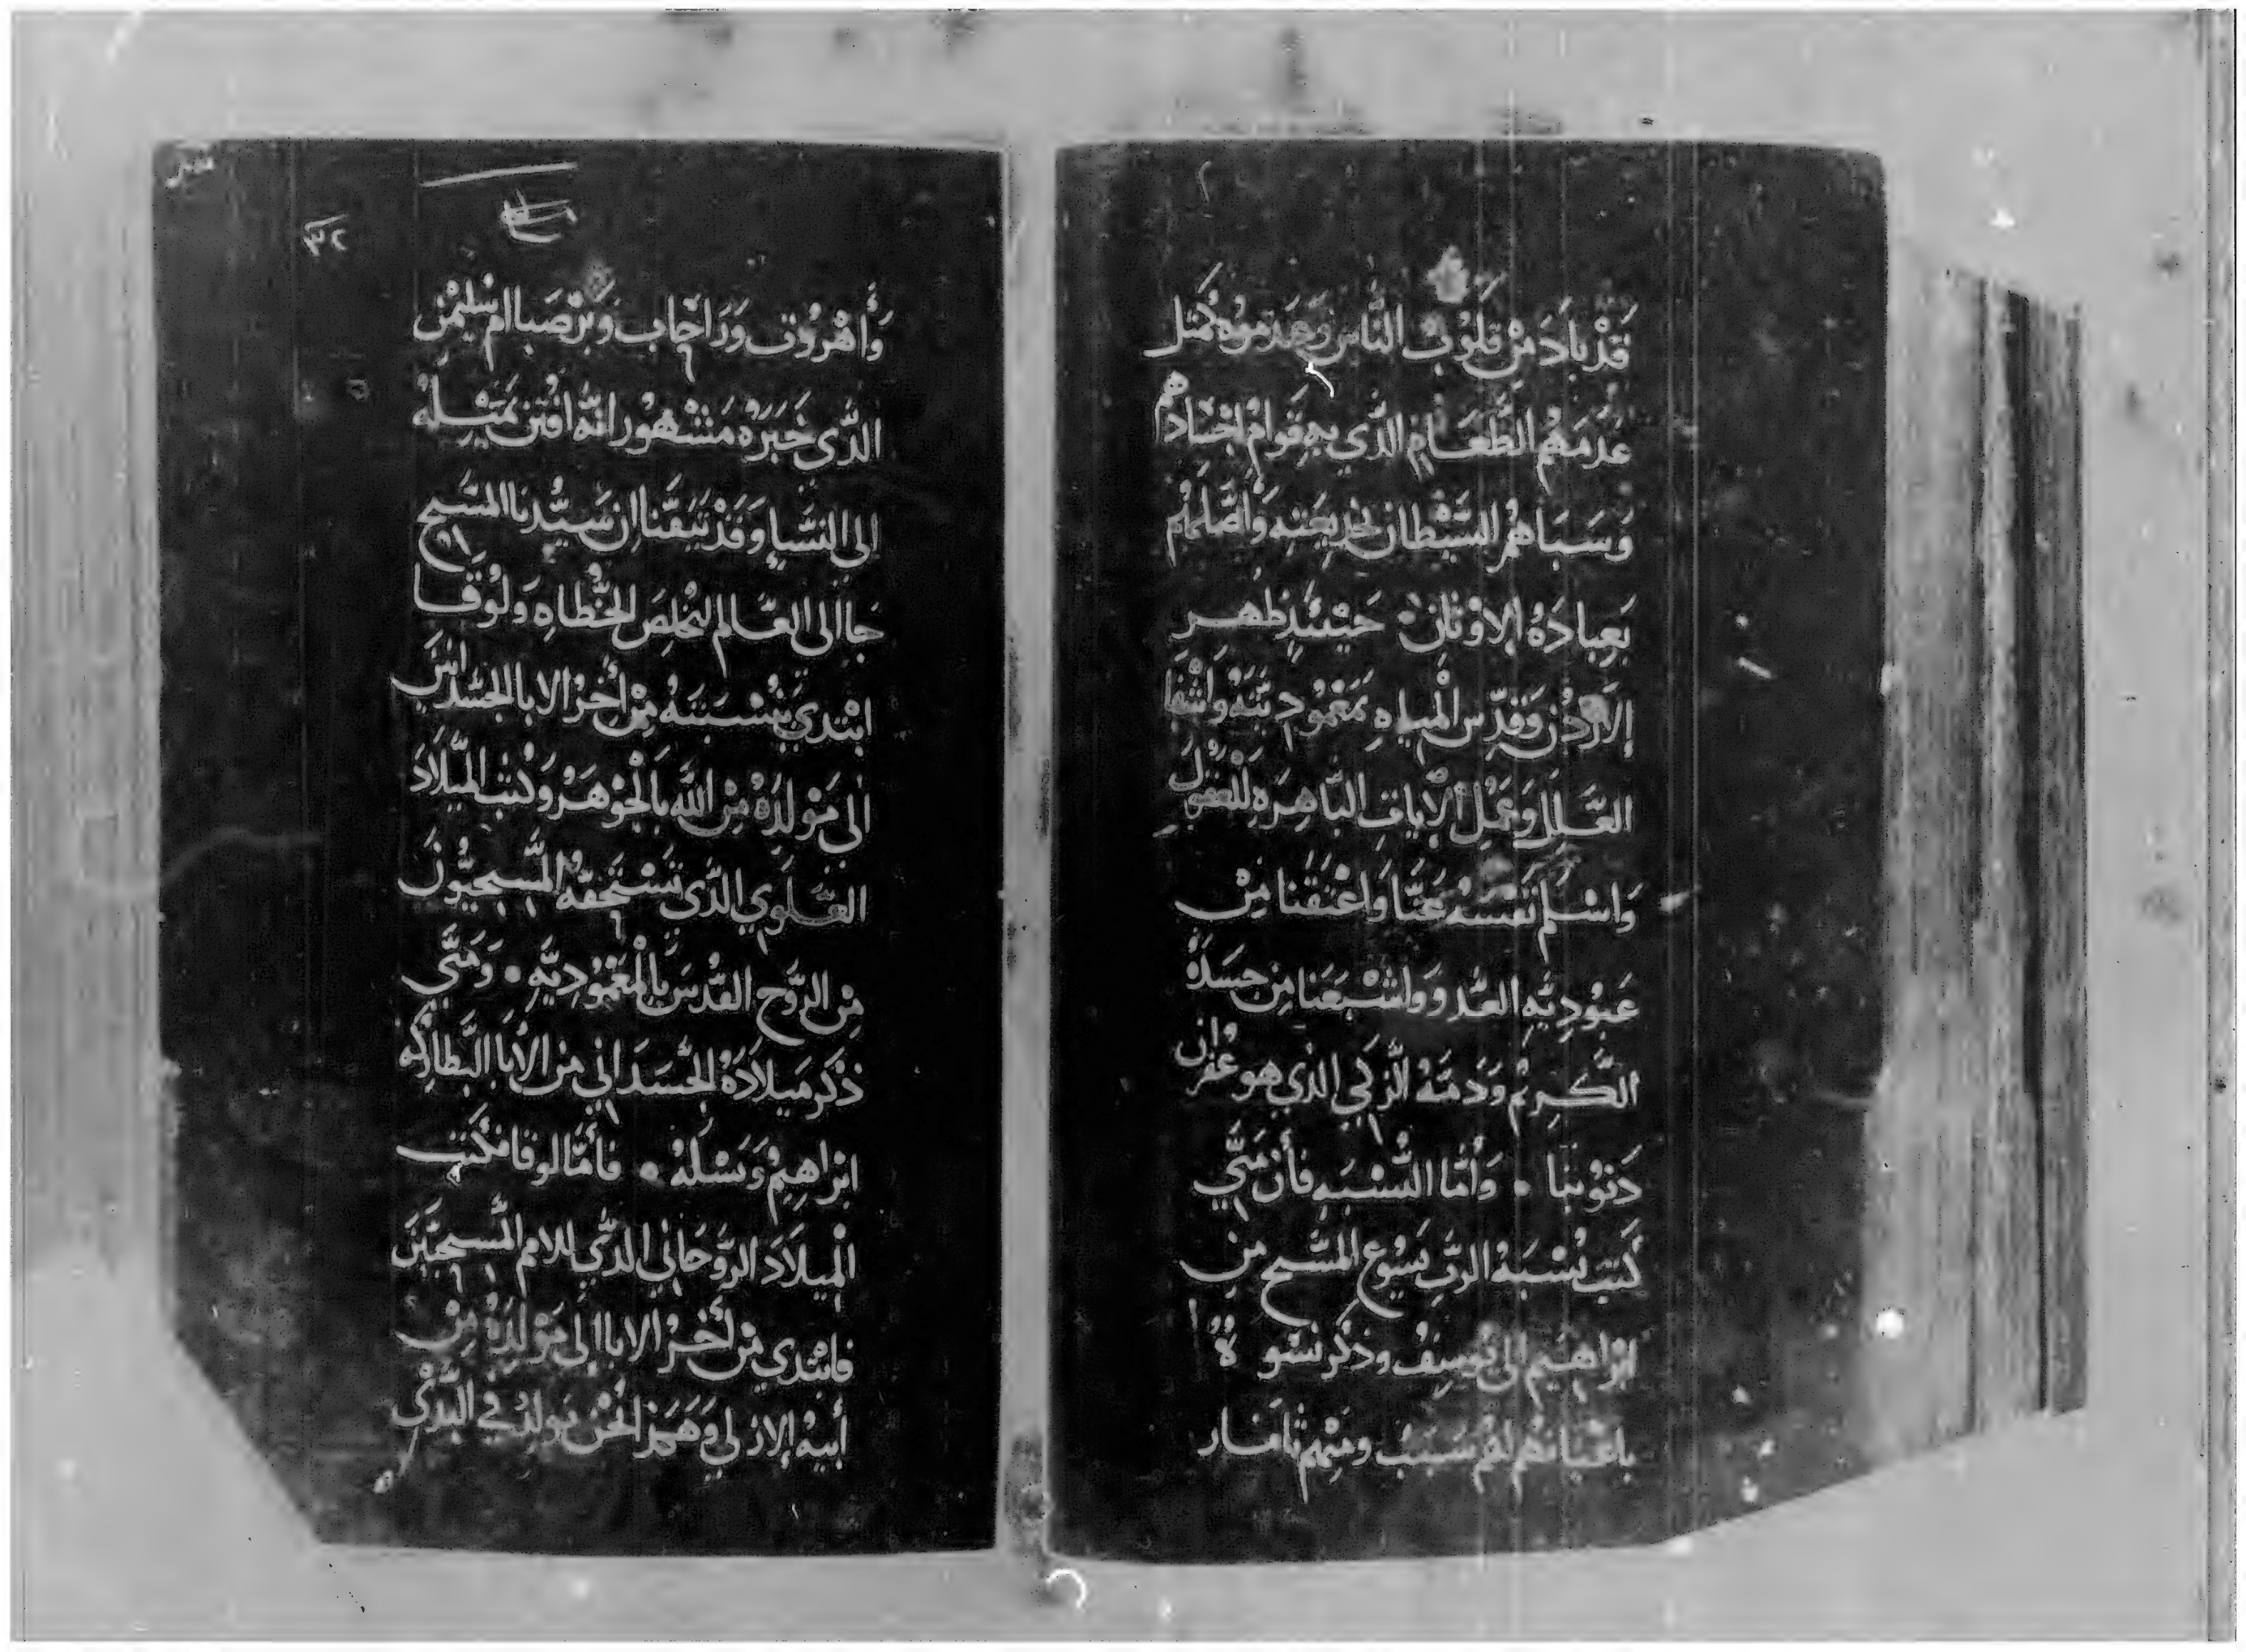 قَدْ بَادَ مِنْ قلُوبْ النَّاس وَعَدموُه كَمَثل
عُدمَهُم الطَّعَام الذَّي بهِ قوَامْ اجْسَادهم
وَسَبَاهُم الشَّيْطان بخديعَتِه وَأضَلهُم
بَعِبادَة الاوْثان. حَيْنئِدٍ ظهَر
الاردُن وَقدِّس المْيَاهِ بمَعْمُوديَّتهُ وَاشْفا
العَلِل وَعَمْل الأيات البَّاهِرَة للعُقوُل
وَاسْلم نفسَهُ عَنَّا وَاعْتقَنا مِنْ
عَبُودِيَّهِ العَدو وَاشْبَعَنا مِن جسَدَهُ
الكَّرِيمْ وَدَمَّهُ الزَّكي الذي هو غفرُان
دَنوُبنا • وَأمَّا النُّسْبَهِ فأن مَتَّي
كَتبْ نسْبَة الرَّب يَسُوع المسَّيح من
ابْراهيْم الى يوسِفْ وذكر نسْوهْ
باعْيانهم لهُم سَبَبْ ومنِهْم ثامَار
٣٢
وَأهْرُوَت وَرَاحَاب وَبَرْصَبا ام سُليمْن
الذَّي خَبَرَهْ مَشْهُور انَّه افتن بمَيْلهُ
الى النسَّا وَقَدْ تيَقَّنا ان سَيُّدنا المسَّيح
جَا الى العَّالم لِيُخلصَ الخُطاه وَلوُقا
ابْتدي بنُسْبَتهُ مِنْ أخرْ الابا الجسَّدانيَن
الى مَوْلدَهْ مِن اللهَّ بَالجوْهَرْ وَكتبْ الميْلادَ
العَّلوي الذَّي تسْتحَقهُ المسَّيحيُّون
مِن الرُّوح القدُسَ بالمْعْمُودِيَّهِ • وَمَتَّي
ذكَر مَيلادَهُ الجسَّدَاني من الأبَا البَّطارِكه
ابْراهِيمْ وَنسْلهُ • فأمَّا لوقا فكَتبَ
الميلاَدَ الروُّحَاني الذَّي للامم المسَّيحيَّين
فابْتدي مِنْ أخرْ الابا الى مَوْلدَهُ مِنْ
أبيهْ الازلي وَهَمَز انْحُن نولدْ في البَدْي